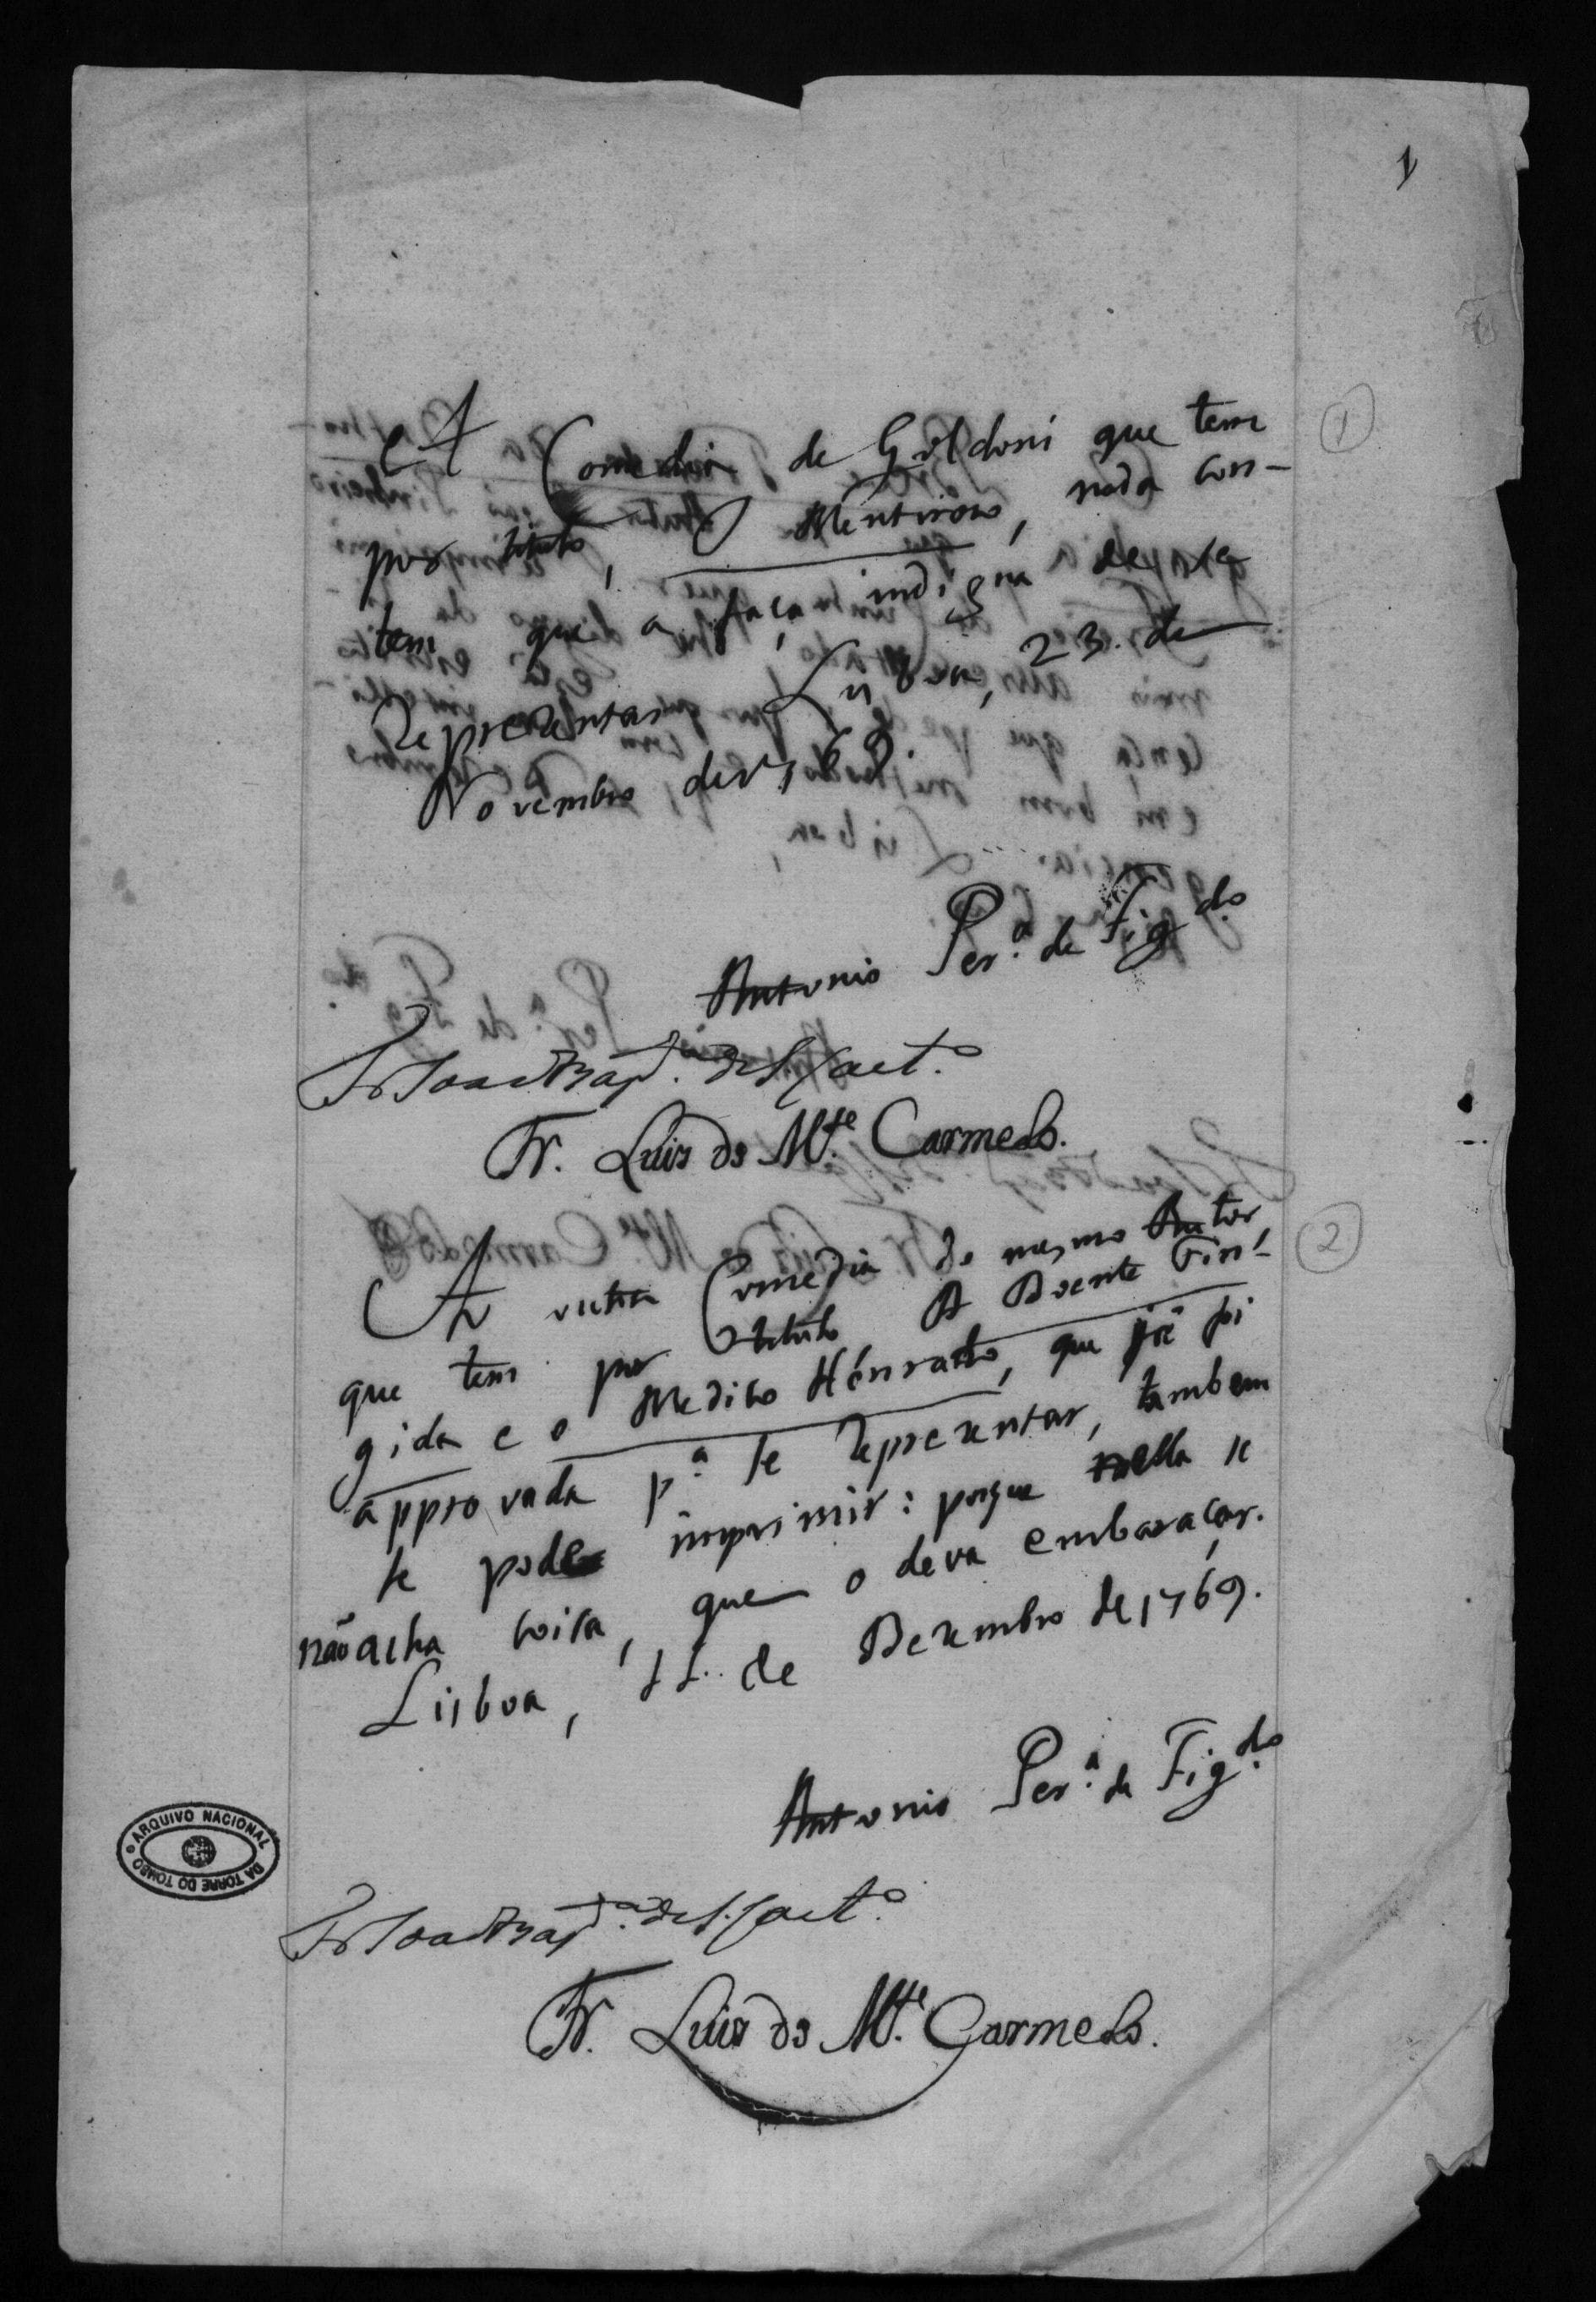 1
A Comedia de Goldoni que tem
1
por titulo, O Mentiroso, nada con-
tem que a faça indigna de se
representar. Lisboa, 23. de
Novembro de 1769.
Antonio Per.ª de Fig.do
Fr Joao Bap.ta de S. Caet.º
Fr. Luis do M.te Carmelo.
A outra Comedia do mesmo Autor,
2
que tem por titulo, A Doente Fin-
gida e o Medico Honrado, que já foi
approvada p.ª se reprezentar, tambem
se pode imprimir: porque nella se
não acha coisa, que o deva embaraçar.
Lisboa, 11. de Dezembro de 1769.
Antonio Per.ª de Fig.do
ARQUIVO NACIONAL DA TORRE DO TOMBO
Fr Joao Bap.ta de S. Caet.º
Fr. Luis do M.te Carmelo.